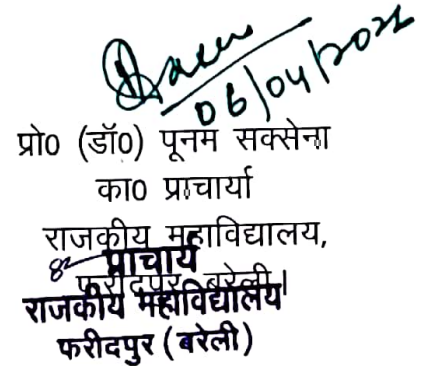 06/04/202
प्रो0 (डॉ0) पूनम सक्सेना
का0 प्राचार्या
राजकीय महाविद्यालय,
फरीदपुर, बरेली।
प्राचार्य
राजकीय महाविद्यालय
फरीदपुर (बरेली)